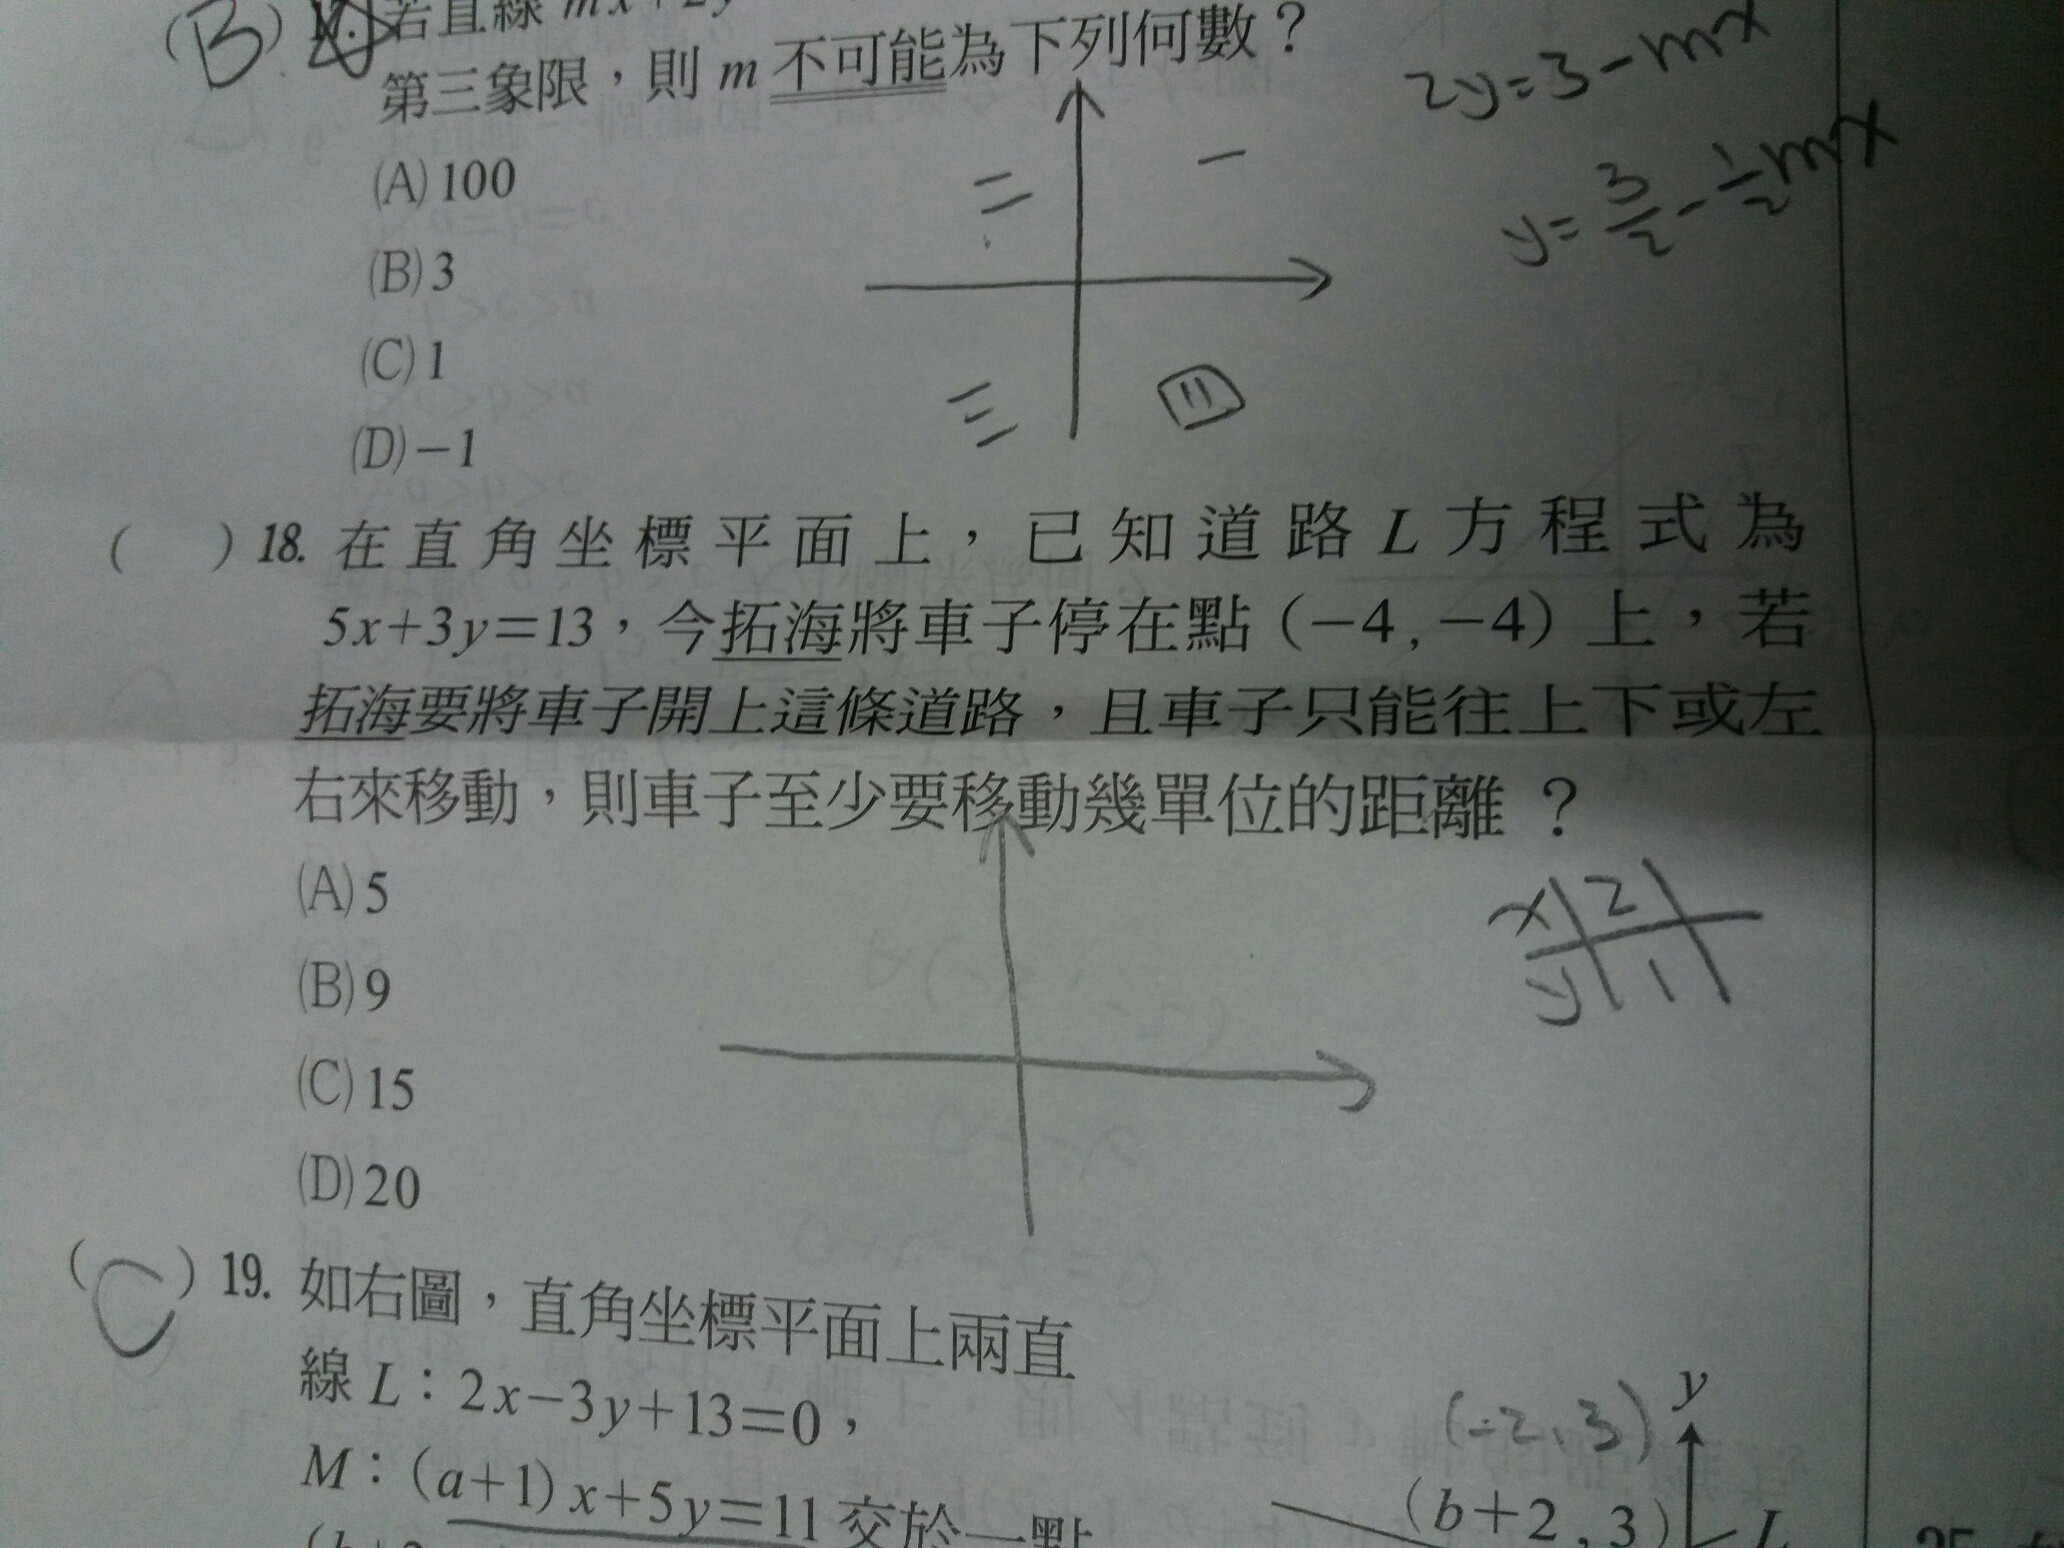 (B) 17. 若直線 mx+2y
第三象限，則 m 不可能為下列何數？
2y=3-mx
y=3/2-1/2mx
(A) 100
(B) 3
(C) 1
(D) -1
二 一
三 四
( ) 18. 在直角坐標平面上，已知道路 L 方程式為
5x+3y=13，今拓海將車子停在點 (-4,-4) 上，若
拓海要將車子開上這條道路，且車子只能往上下或左
右來移動，則車子至少要移動幾單位的距離？
(A) 5
(B) 9
(C) 15
(D) 20
x 2
y 1
(C) 19. 如右圖，直角坐標平面上兩直
線 L：2x-3y+13=0，
M：(a+1)x+5y=11 交於一點
(-2,3)
y
(b+2,3)
L